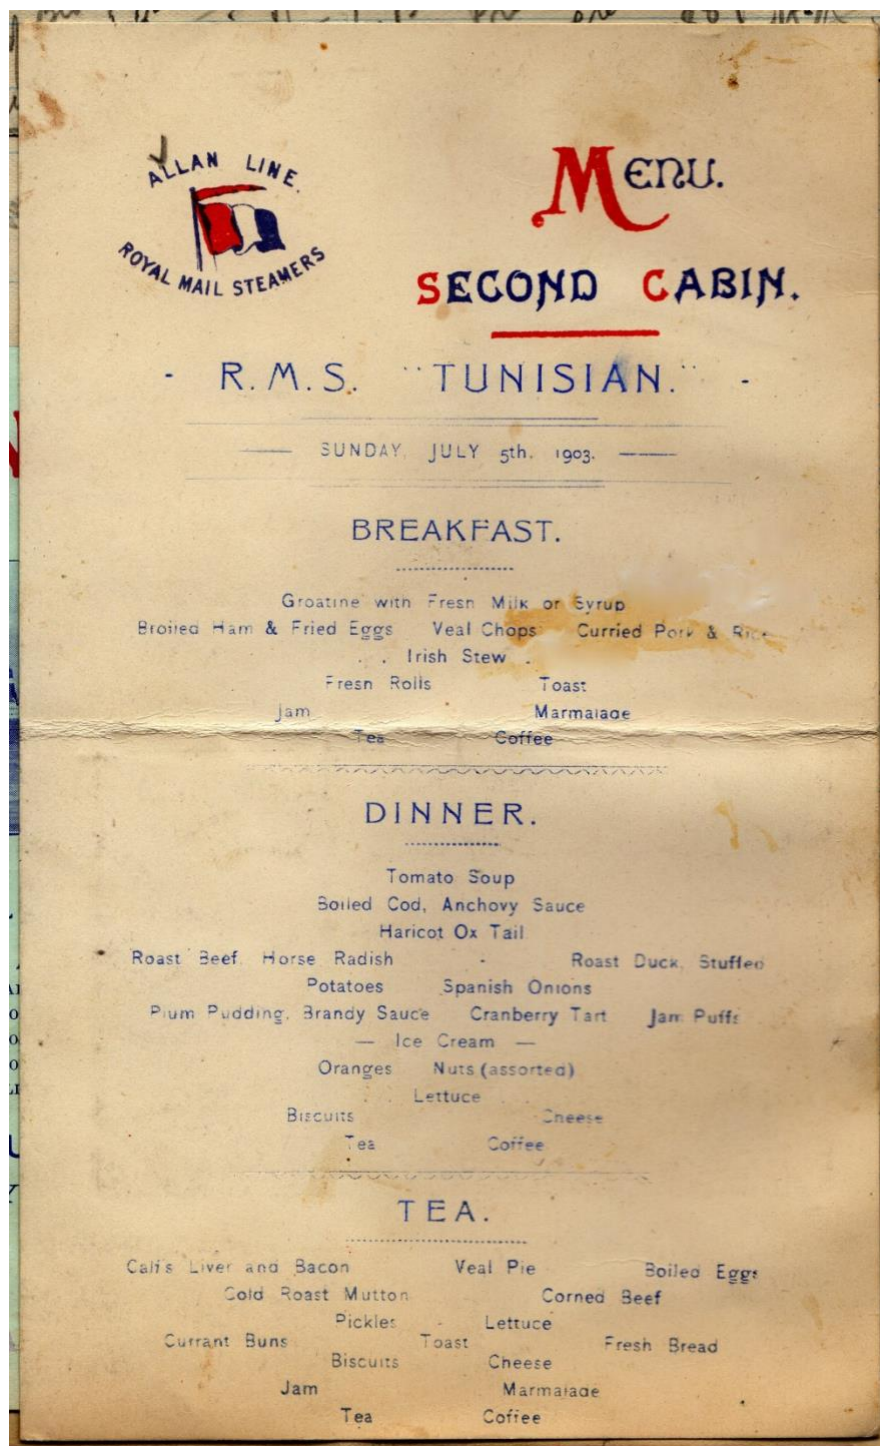 ALLAN LINE.
ROYAL MAIL STEAMERS
MENU.
SECOND CABIN.
- R.M.S. "TUNISIAN." -
SUNDAY, JULY 5th, 1903.
BREAKFAST.
Groatine with Fresh Milk or Syrup
Broiled Ham & Fried Eggs Veal Chops Curried Pork & Rice
Irish Stew
Fresh Rolls Toast
Jam Marmalade
Tea Coffee
DINNER.
Tomato Soup
Boiled Cod, Anchovy Sauce
Haricot Ox Tail
Roast Beef, Horse Radish - Roast Duck, Stuffed
Potatoes Spanish Onions
Plum Pudding, Brandy Sauce Cranberry Tart Jam Puffs
— Ice Cream —
Oranges Nuts (assorted)
Lettuce
Biscuits Cheese
Tea Coffee
TEA.
Calf's Liver and Bacon Veal Pie Boiled Eggs
Cold Roast Mutton Corned Beef
Pickles - Lettuce
Currant Buns Toast Fresh Bread
Biscuits Cheese
Jam Marmalade
Tea Coffee